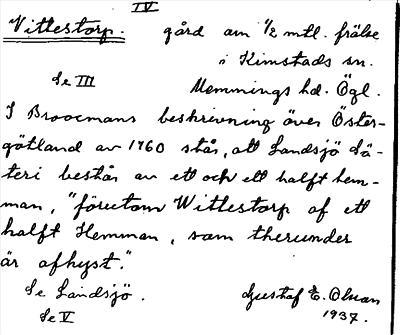 IV
Vittestorp. gård om 1/2 mtl. frälse
i Kimstads sn.
Se III Memmings hd. Ögl.
I Broocmans beskrivning över Öster-
götland av 1760 står, att Landsjö Sä-
teri består av ett och ett halft hem-
man, "förutom Wittestorp of ett
halft Hemman, som therunder
är afhyst."
Se Landsjö. Gustaf E. Olsson
Se V 1937.